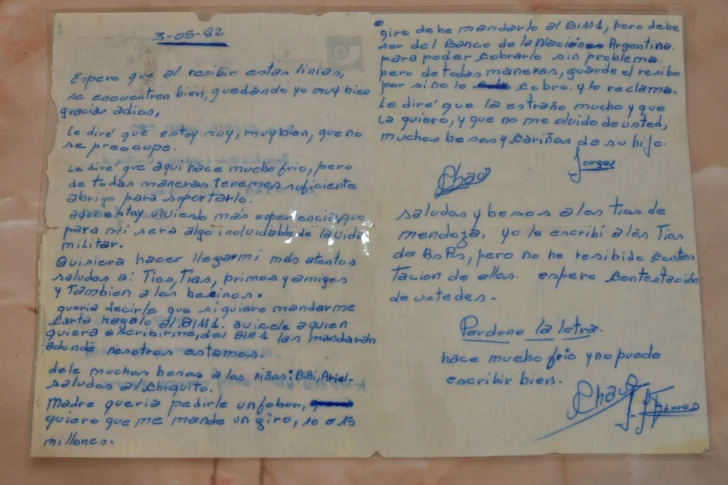 3-05-82
Espero que al recibir estas linias,
se encuentren bien, quedando yo muy bien
gracias adios,
Le diré que estoy muy, muy bien, que no
se preocupe.
Le diré que aquí hace mucho frio, pero
de todas maneras tenemos suficiente
abrigo para soportarlo.
estoy viviendo más esperiencia, que
para mi sera algo inoluidable de la vida
militar.
Quisiera hacer llegar mi más atentos
saludos a: Tios, Tias, primos y amigos
y Tambien a los besinos.
queria decirle que si quiere mandarme
carta hagalo al BIM1. avicele a quien
quiera escribirme, del BIM1 las mandaran
adonde nosotros estamos.
dele muchos besos a las niñas: BiBi, Ariel.
saludos al chiquito.
Madre queria pedirle un fabor,
quiero que me mande un giro, 10 o 15
millones.
giro debe mandarlo al BIM1, pero debe
ser del Banco de la Nación Argentina.
para poder cobrarlo sin problema.
pero de todas maneras, guarde el resibo
por si no lo cobro. y lo reclama.
Le diré que la estraño mucho y que
la quiero, y que no me oluido de usted,
muchos besos y cariños de su hijo.
Jorge
Chau
saludos y besos a los tias de
mendoza, yo le escribí a los Tias
de BsAs, pero no he resibido conten
tacion de ellos. espero contestación
de ustedes.
Perdone la letra.
hace mucho frío y no puedo
escribir bien.
Chau